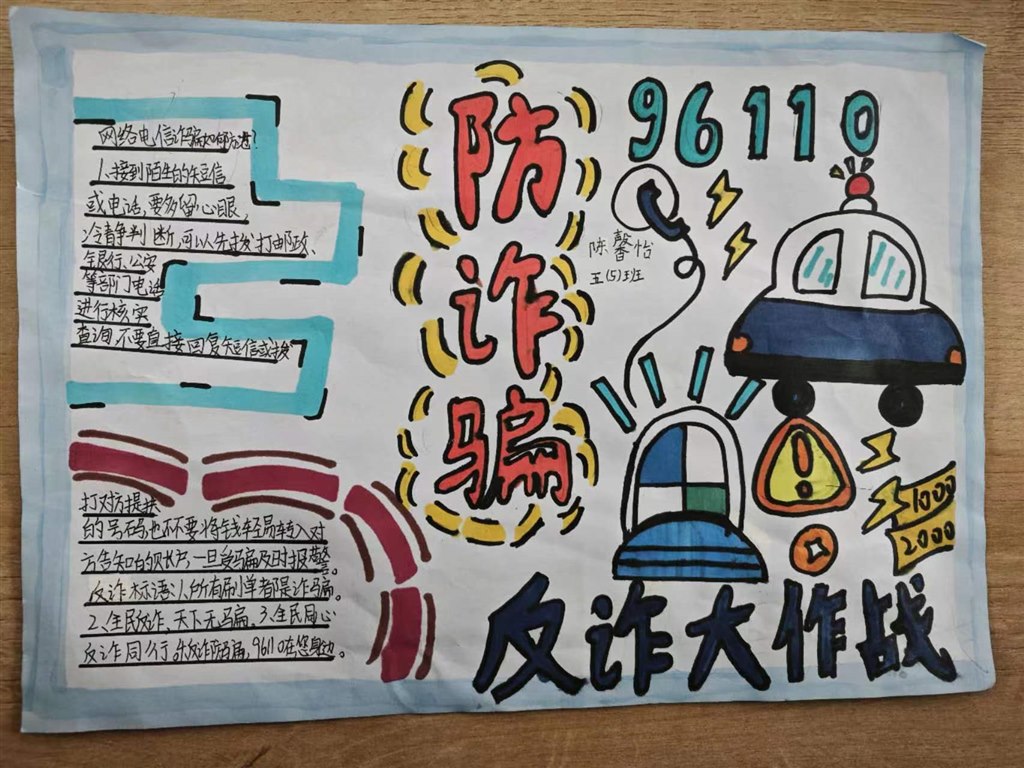 网络电信诈骗如何防进?
1、接到陌生的短信
或电话,要多留心眼,
冷静判断,可以先拨打邮政、
银行、公安
等部门电话
进行核实
查询,不要直接回复短信或拨
打对方提供
的号码,也不要将钱轻易转入对
方告知的账户,一旦受骗及时报警。
反诈标语:1、所有刷单都是诈骗。
2、全民反诈,天下无骗、3、全民同心
反诈同行
9610在您身边。
防
诈
骗
96110
陈馨怡
五(5)班
1000
2000
反诈大作战